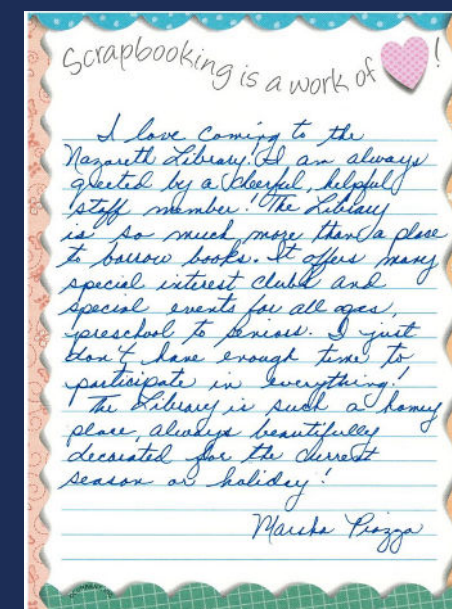 Scrapbooking is a work of !
I love coming to the
Nazareth Library! I am always
greeted by a cheerful, helpful
staff member! The Library
is so much more than a place
to borrow books. It offers many
special interest clubs and
special events for all ages,
preschool to seniors. I just
don't have enough time to
participate in everything!
The Library is such a homey
place, always beautifully
decorated for the current
season or holiday!
Marsha Piazza